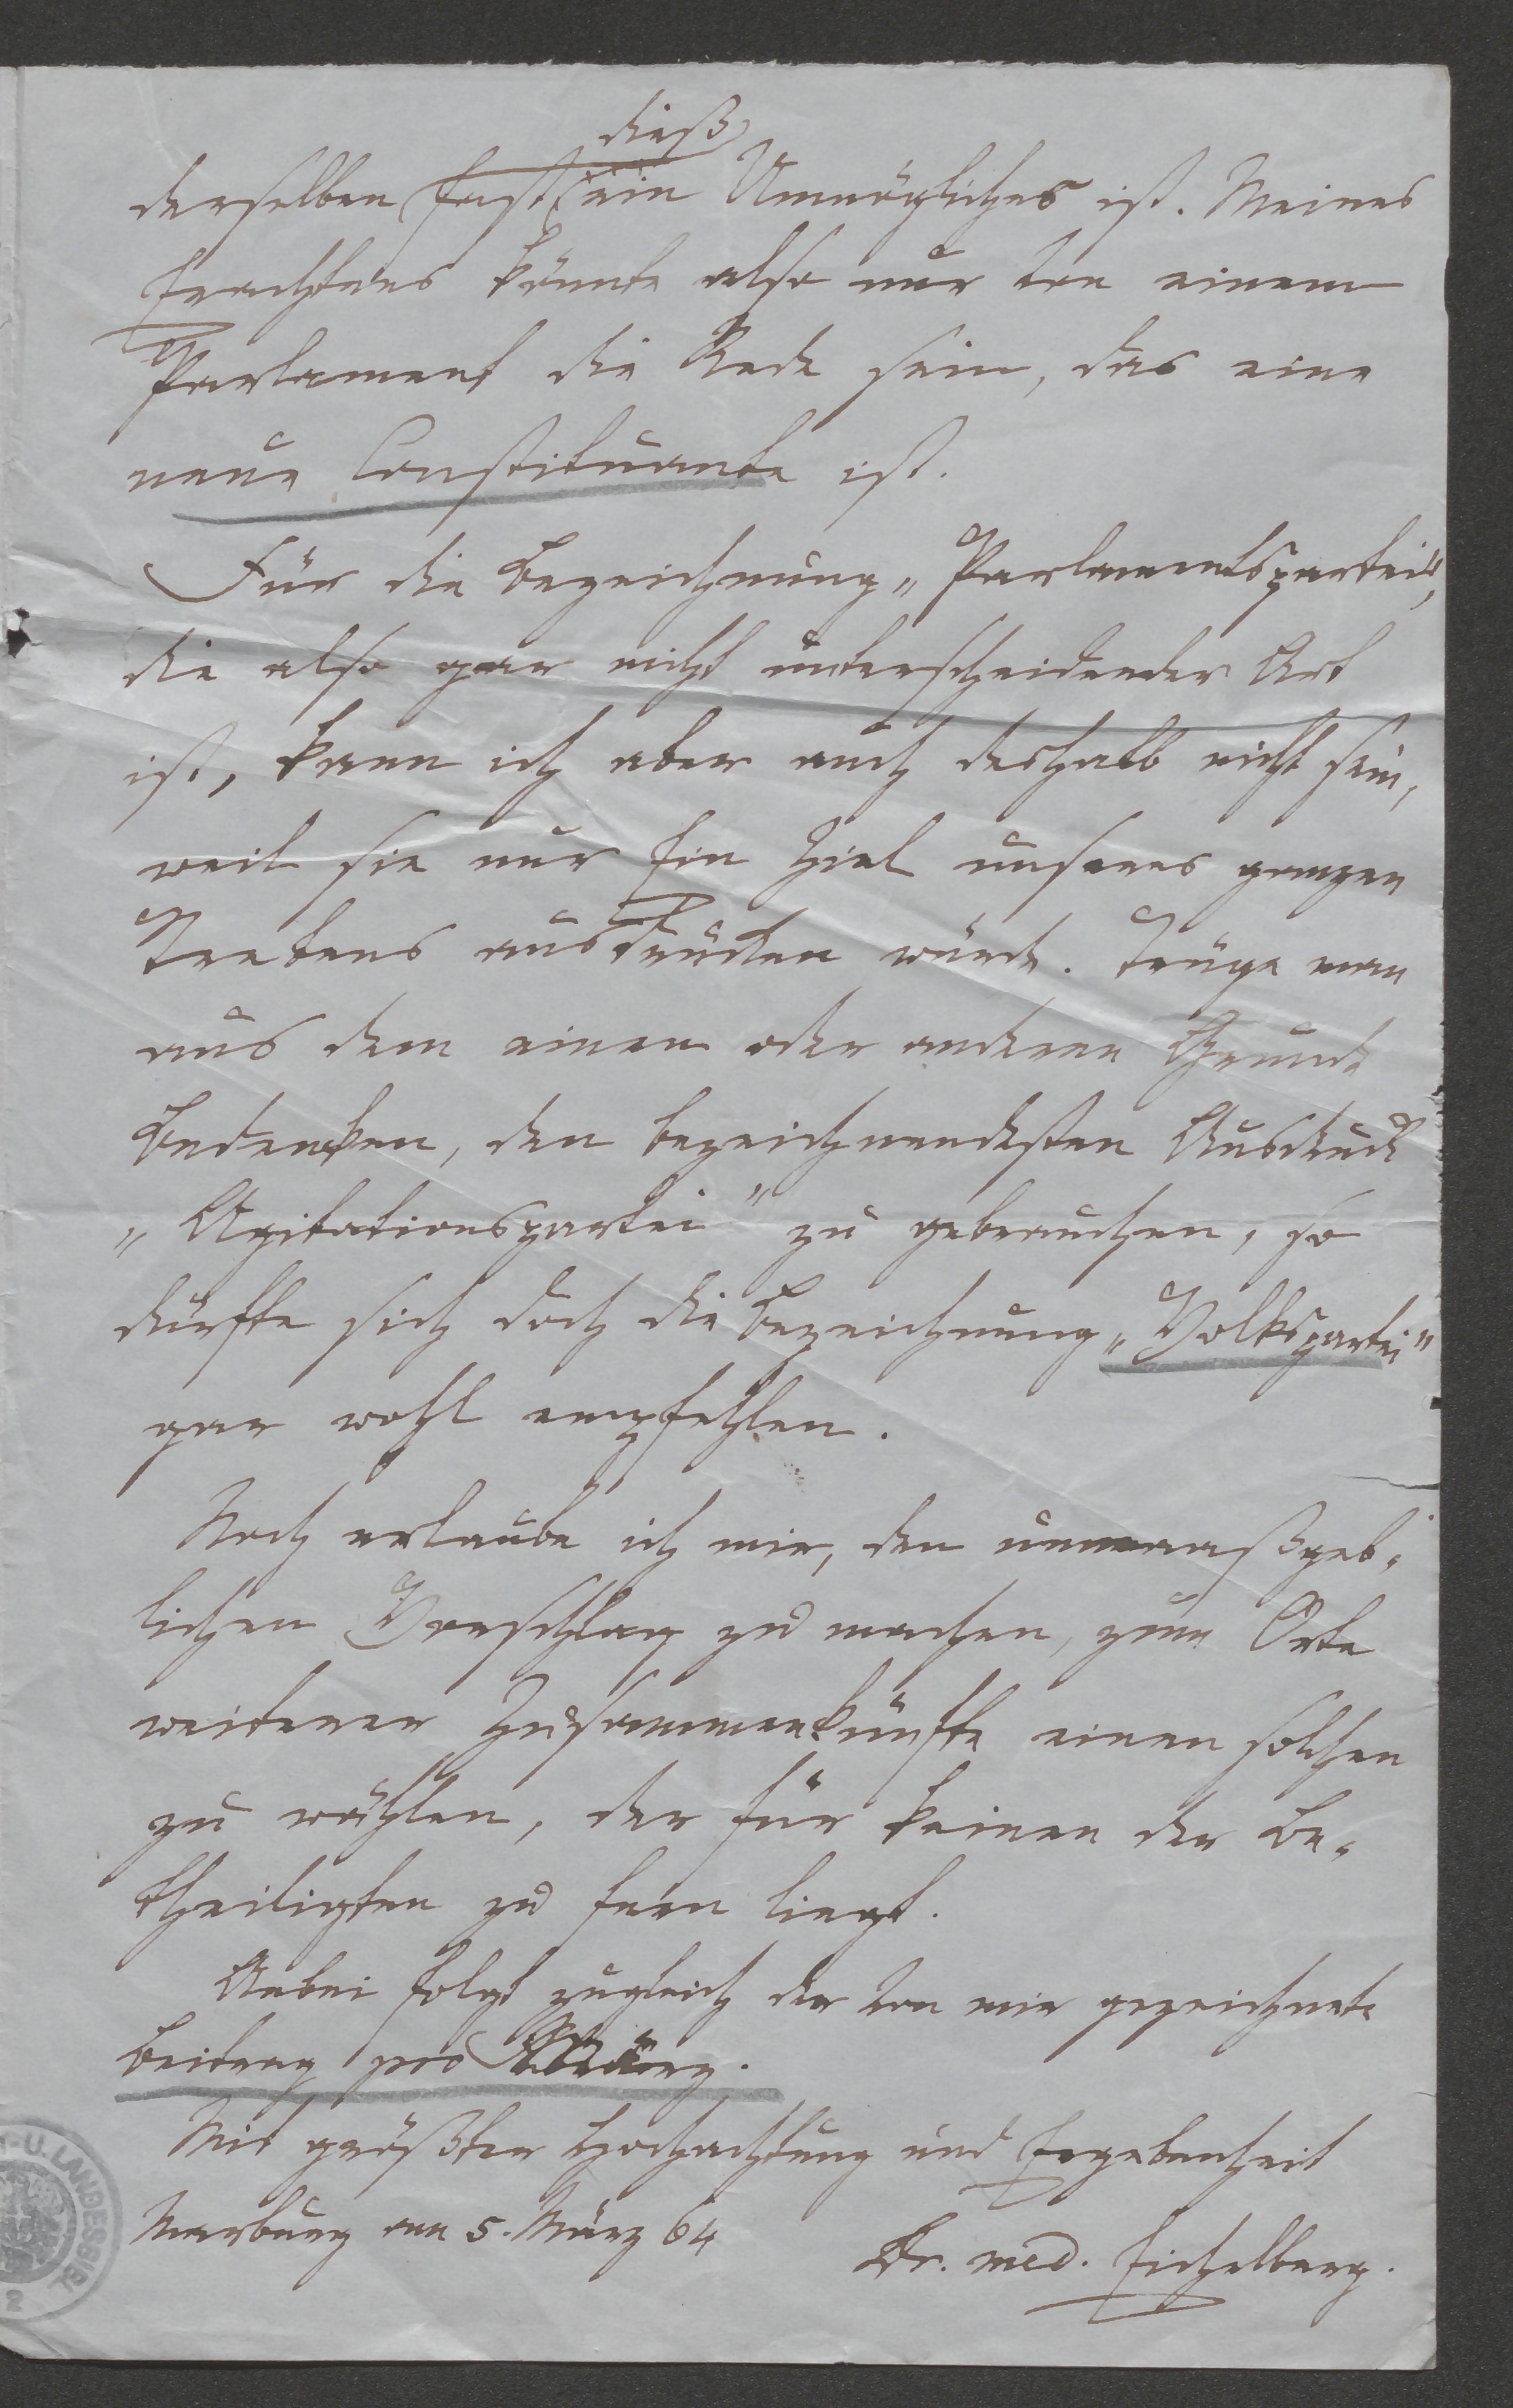 dieß
derselben fast ein Unmögliches ist. Meines
Erachtens könnte also nur von einem
Parlament die Rede sein, das eine
neue Constituante ist.
Für die Bezeichnung „Parlamentspartei",
die also gar nicht unterscheidender Art
ist, kann ich aber auch deshalb nicht sein,
weil sie nur Ein Ziel unseres ganzen
Strebens ausdrücken würde. Trüge man
aus dem einen oder anderen Grunde
Bedenken, den bezeichnendsten Ausdruck
„Agitationspartei" zu gebrauchen, so
dürfte sich doch die Bezeichnung „Volkspartei"
gar wohl empfehlen.
Noch erlaube ich mir, den unmaaßgeb-
lichen Vorschlag zu machen, zum Orte
weiterer Zusammenkünfte einen solchen
zu wählen, der für keinen der Be-
theiligten zu fern liegt.
Anbei folgt zugleich der von mir gezeichnete
Beitrag pro März.
Mit größter Hochachtung und Ergebenheit
Marburg am 5. März 64
Dr. med. Eichelberg.
U. LANDESBIBL
2